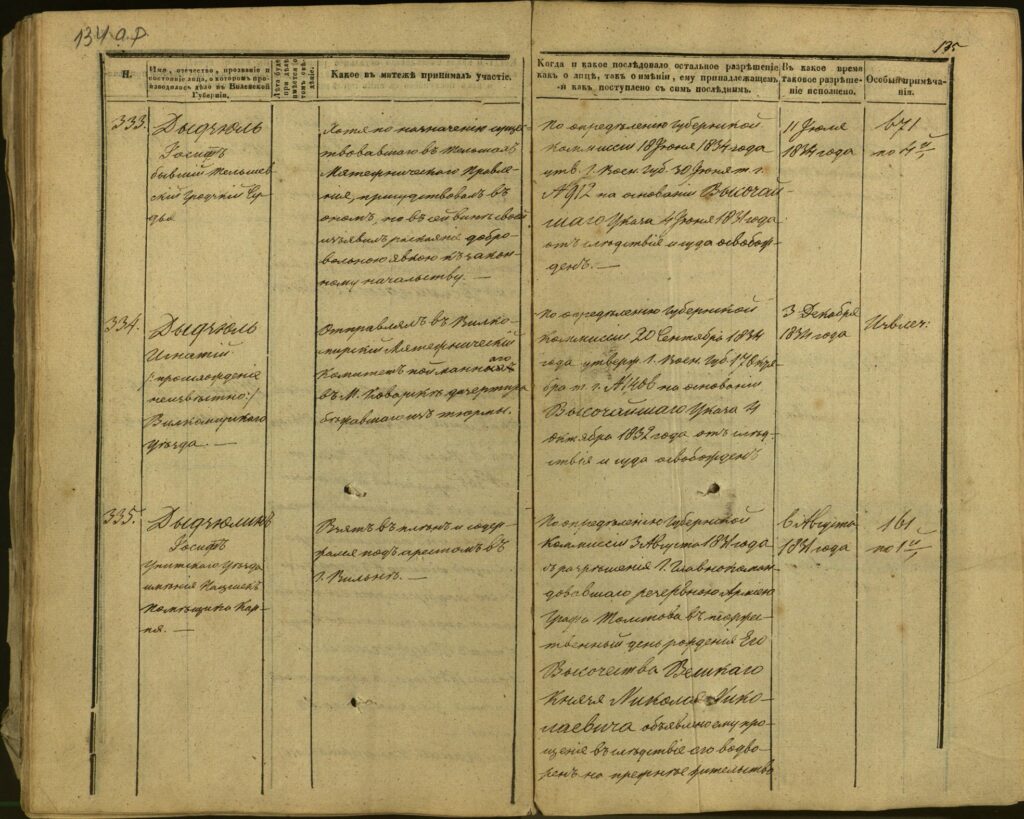 134 а.ф.
135
Н.
Имя, отечество, прозваніе и
состояніе лица, о которомъ про-
изводилось дѣло въ Виленской
Губерніи.
Какое въ мятежѣ принималъ участіе.
Когда и какое послѣдовало остальное разрѣшеніе
какъ о лицѣ, такъ о имѣніи, ему принадлежащемъ
и какъ поступлено съ симъ послѣднимъ.
Въ какое время
таковое разрѣше-
ніе исполнено.
Особый примѣча-
нія.
333.
Дыдзюль
Іосифъ
бывшій Тельшев-
скій Гродскій Су-
дья
Хотя по назначенію суще-
ствовавшаго въ Тельшахъ
Мятежническаго Правле-
нія, присудствовалъ въ
ономъ, но въ сей винѣ своей
изъявилъ раскаяніе добро-
вольною явкою къ закон-
ному начальству. —
По опредѣленію Губернской
Коммисіи 18 Іюня 1834 года
утв. Г. Воен. Губ. 30 Іюня т. г.
№ 912 на основаніи Высочай-
шаго Указа 4 Іюня 1831 года
отъ слѣдствія и суда освобож-
денъ. —
11 Іюля
1834 года
671
334.
Дыдзюль
Игнатій
/:происхожденіе
неизвѣстно:/
Вилкомирскаго
уѣзда. —
Отправлялъ въ Вилко-
мирскій Мятежническій
Комитетъ пойманнаго
въ М. Коварскъ дезертира
бежавшаго изъ тюрмы.
По опредѣленію Губернской
Коммисіи 20 Сентября 1834
года утверж. Г. Воен. Губ.
на основаніи
Высочайшаго Указа 4
Октября 1832 года отъ слѣд-
ствія и суда освобожденъ
3 Декабря
1834 года
Извлеч:
335.
Дыдзюлинъ
Іосифъ
Упитскаго уѣзда
имѣнія
Помѣщика Кар-
пя. —
Взятъ въ плѣнъ и содер-
жался подъ арестомъ въ
г. Вильнѣ. —
По опредѣленію Губернской
Коммисіи 3 Августа 1831 года
съ разрѣшенія Г. Главнокоман-
довавшаго резервною Арміею
Графа Толстова въ торже-
ственный день рожденія Его
Высочества Великаго
Князя Николая Нико-
лаевича объявлено ему про-
щеніе въ слѣдствіе его водво-
ренъ на прежнее жительство
6 Августа
1831 года
161